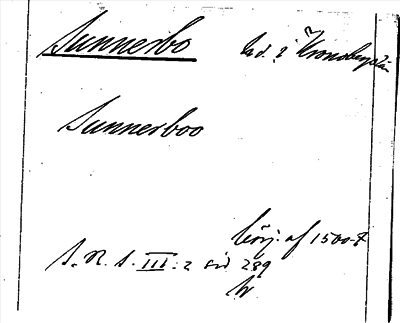 Sunnerbo hd. i Kronobergs län
Sunnerboo
börj. af 1500-t
S. R. S. III: 2 sid 289